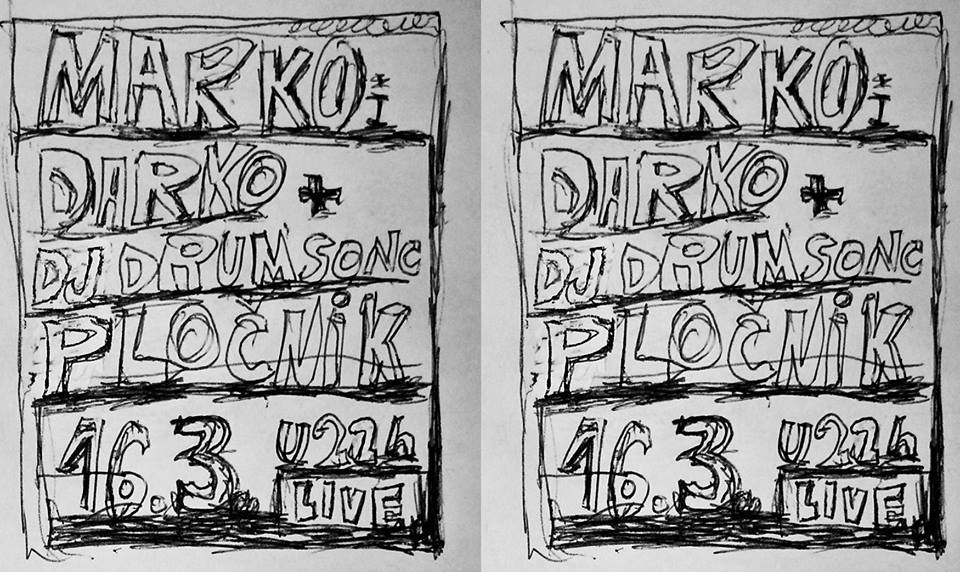 MARKO I
DARKO +
DJ DRUMSONG
PLOČNiK
16.3. U22h
LIVE
MARKO I
DARKO +
DJ DRUMSONG
PLOČNiK
16.3. U22h
LIVE